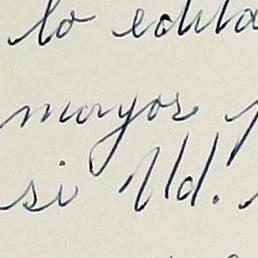 lo
mayor
si Ud.